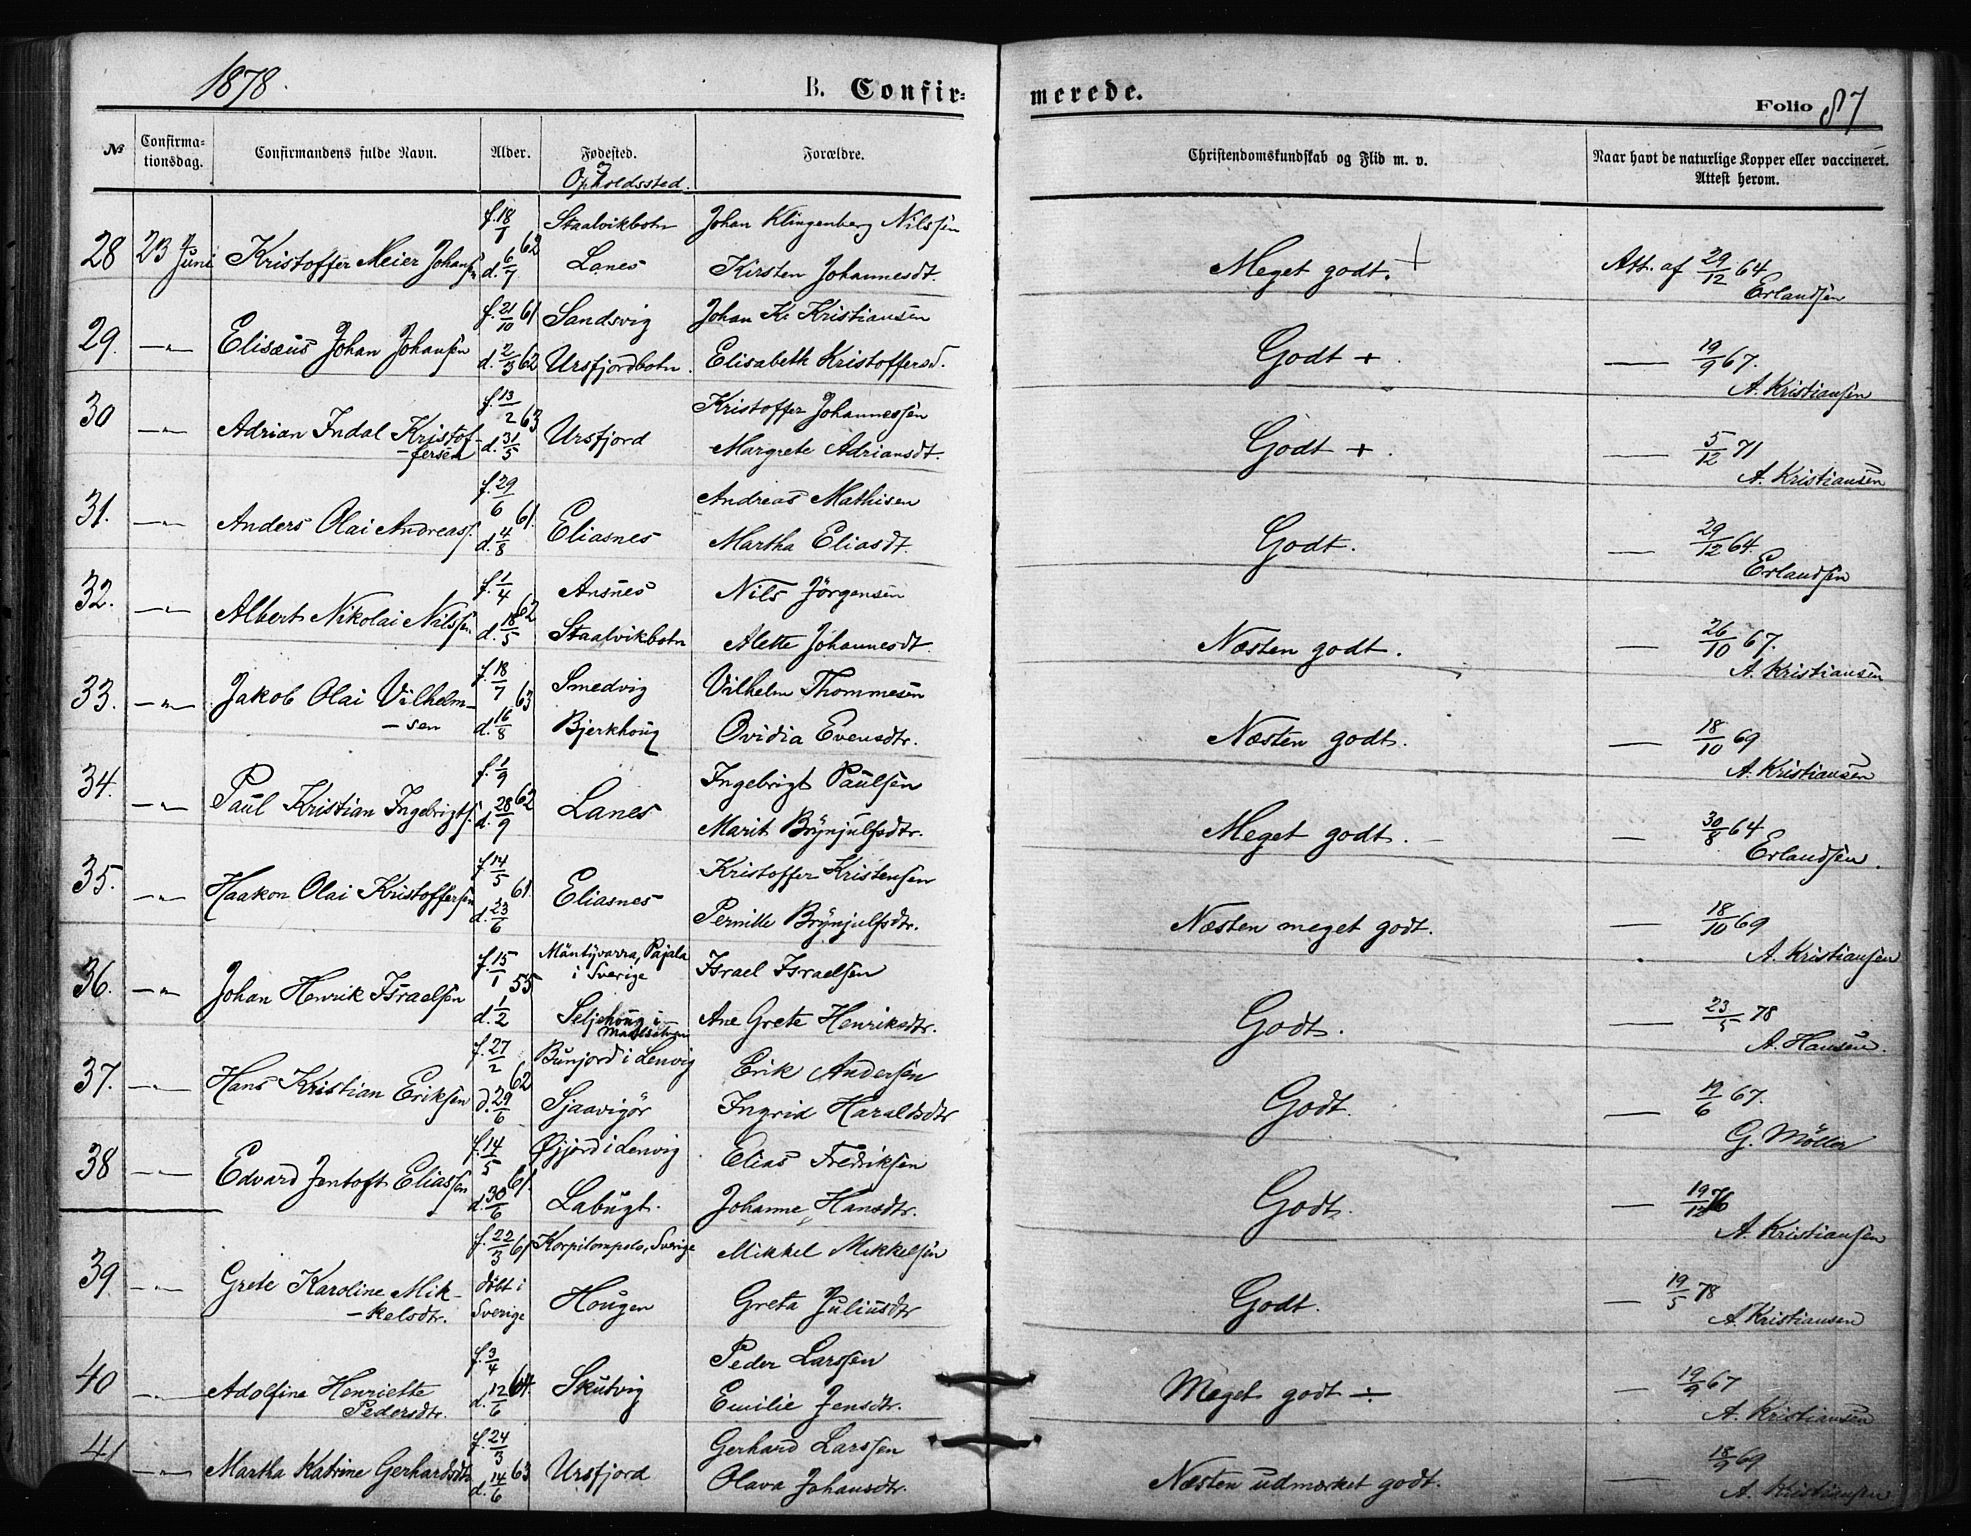 1878.
B. Confir-
merede.
Folio 87
№
Confirma-
tionsdag.
Confirmandens fulde Navn.
Alder.
Fødested.
Opholdssted.
Forældre.
Christendomskundskab og Flid m. v.
Naar havt de naturlige Kopper eller vaccineret.
Attest herom.
f. 18/1 Staalvikbotn Johan Klingenberg Nilssen
28 23 Juni Kristoffer Meier Johans. 62 Meget godt. + Att. af 29/12 64
d. 6/7 Lanes Kirsten Johannesdt. Erlandsen
f. 21/10 61 Sandsvig Johan Kr Kristiansen
29. —"— Elisæus Johan Johansen Godt + — 19/9 67.
d. 2/3 62 Ursfjordbotn. Elisabeth Kristoffersd. A. Kristiansen
30 f. 13/2 63 Kristoffer Johannessen
—"— Adrian Indal Kristof- Ursfjord Godt + . — 5/12 71
-fersen d. 31/5 Margrete Adriansdt. A. Kristiansen
f. 29/6 61. Andreas Mathisen
31. —"— Anders Olai Andreass. Eliasnes Godt. — 29/12 64
d. 4/8 Martha Eliasdt. Erlandsen
32. f. 1/4 62 Ansnes Nils Jörgensen
—"— Albert Nikolai Nilssen Næsten godt. — 26/10 67.
d. 18/5 Staalvikbotn Alette Johannesdt. A. Kristiansen
33. f. 18/7 63 Smedvig Vilhelm Thommesen
—"— Jakob Olai Vilhelm- Næsten godt. — 18/10 69
-sen d. 16/8 Bjerkhoug Ovidia Evensdtr. A. Kristiansen
34. f. 1/9 62 Ingebrigt Paulsen
—"— Paul Kristian Ingebrigts. Lanes Meget godt. — 30/8 64
d. 28/9 Marit Brynjulfsdtr. Erlandsen.
35. f. 14/5 61. Kristoffer Kristensen
—"— Haakon Olai Kristoffersen Eliasnes Næsten meget godt. — 18/10 69
d. 23/6 Pernille Brynjulfsdtr. A. Kristiansen
f. 15/1 55 Mäntyvarra, Pajala
i Sverige Israel Israelsen
36. —"— Johan Henrik Israelsen Godt. — 23/5 78
d. 1/2 Seljehoug i Ane Grete Henriksdtr. A. Hansen.
f. 27/2 62 Bunjord i Lenvig Erik Andersen
37. —"— Hans Kristian Eriksen Godt. — 67.
d. 29/6 Sjaavigör Ingrid Haraldsdtr G. Möller
38 f. 14/5 61. Øjjord i Lenvig Elias Fredriksen
—"— Edvard Jentoft Eliassen Godt. — 19/12 76
d. 30/6 Labugt. Johanne Hansdtr. A. Kristiansen
f. 22/3 61 Korpilompolo, Sverige Mikkel Mikkelsen
39. —"— Grete Karoline Mik- döbt i Godt. — 19/5 78
-kelsdtr. Sverige Hougen Greta Juliusdtr A. Kristiansen
f. 3/4 64. Peder Larssen
40 —"— Adolfine Henriette Skutvig Meget godt ÷ — 19/9 67
Pedersdtr. d. 12/6 Emilie Jensdtr. A. Kristiansen
41 f. 24/3 63 Gerhard Larssen
—"— Martha Katrine Gerhardsdtr Ursfjord Næsten udmærket godt. — 18/9 69
d. 14/6 Olava Johansdtr. A. Kristiansen